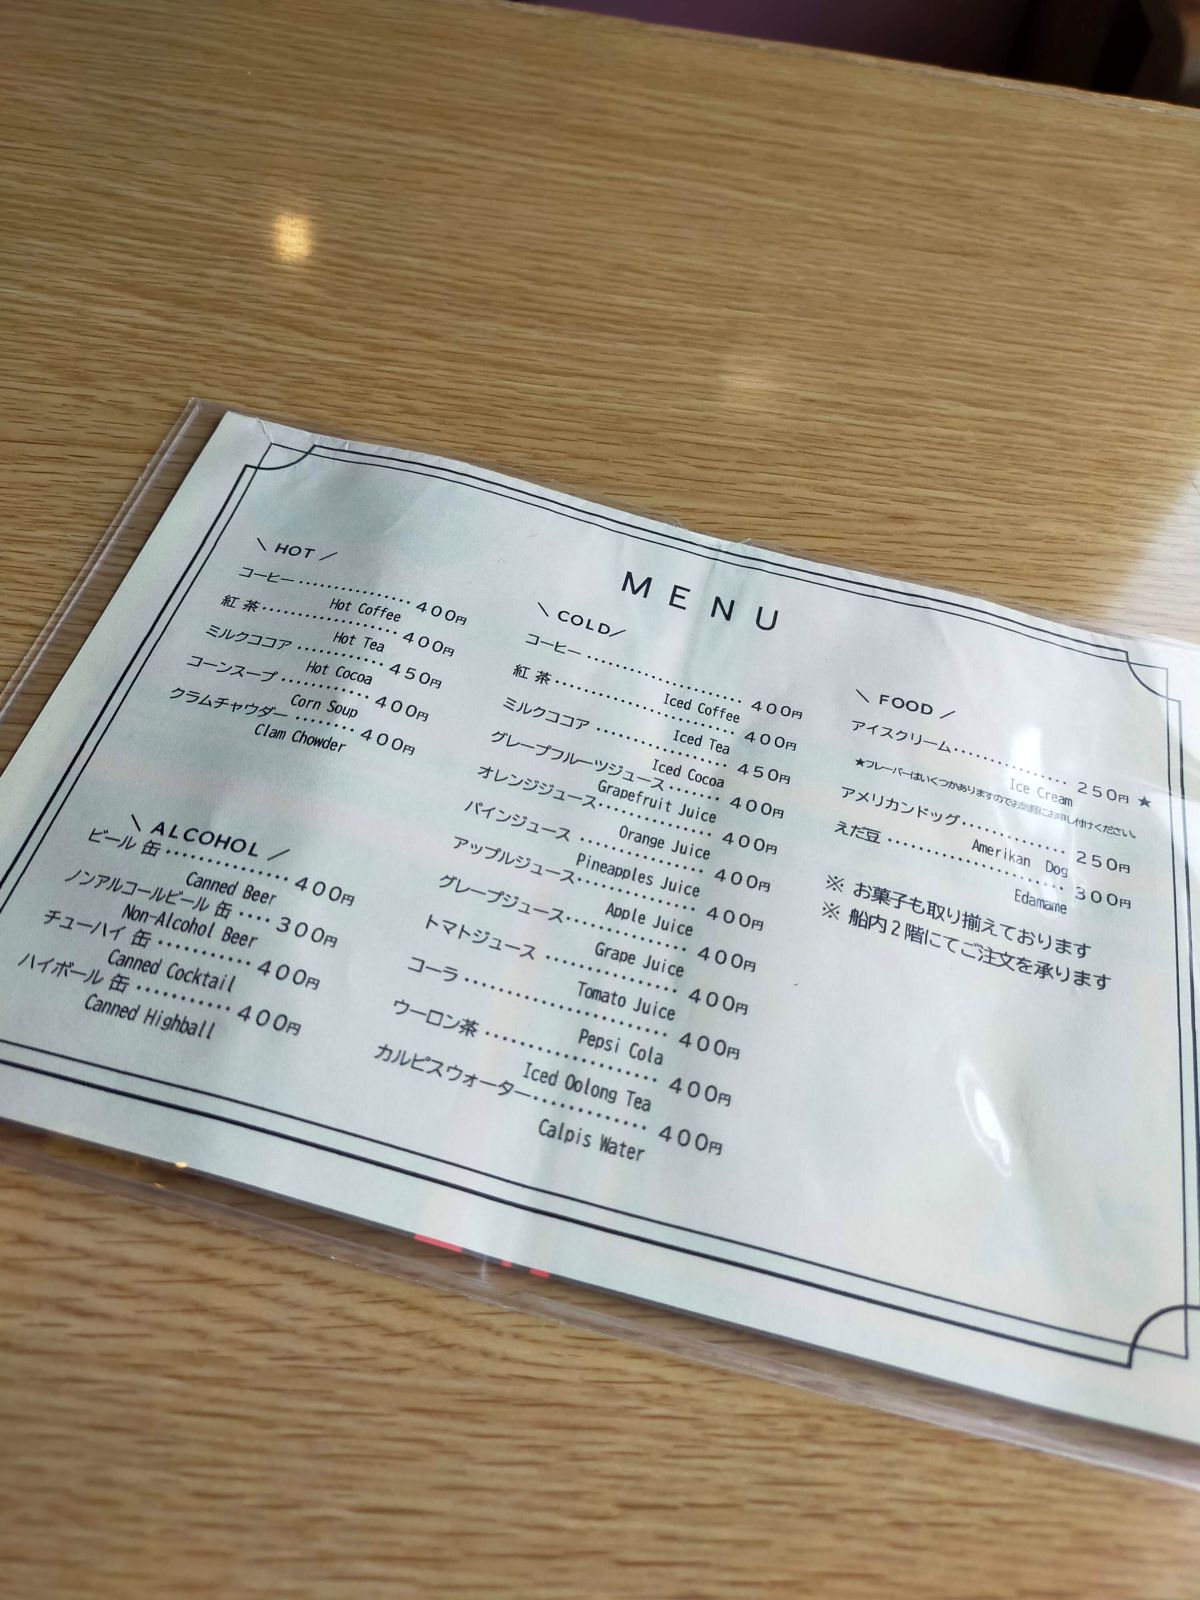 MENU
\ HOT /
コーヒー ・・・・・・・・・・・・・・・・ 400円
Hot Coffee
紅 茶・・・・・・・・・・・・・・・・・・・ 400円
Hot Tea
ミルクココア ・・・・・・・・・・・・ 450円
Hot Cocoa
コーンスープ ・・・・・・・・・・・・ 400円
Corn Soup
クラムチャウダー ・・・・・・・・ 400円
Clam Chowder
\ ALCOHOL /
ビール 缶・・・・・・・・・・・・ 400円
Canned Beer
ノンアルコールビール 缶・・・・ 300円
Non-Alcohol Beer
チューハイ 缶・・・・・・・・・ 400円
Canned Cocktail
ハイボール 缶・・・・・・・・・・・ 400円
Canned Highball
\ COLD /
コーヒー ・・・・・・・・・・・・・・・・・・・・・ 400円
Iced Coffee
紅 茶・・・・・・・・・・・・・・・・・・・・・・・・ 400円
Iced Tea
ミルクココア ・・・・・・・・・・・・・・・・・ 450円
Iced Cocoa
グレープフルーツジュース・・・・・・・ 400円
Grapefruit Juice
オレンジジュース・・・・・・・・・・・・・・ 400円
Orange Juice
パインジュース ・・・・・・・・・・・・・・・ 400円
Pineapples Juice
アップルジュース・・・・・・・・・・・・・・ 400円
Apple Juice
グレープジュース・・・・・・・・・・・・・・ 400円
Grape Juice
トマトジュース ・・・・・・・・・・・・・・・ 400円
Tomato Juice
コーラ・・・・・・・・・・・・・・・・・・・・・・・ 400円
Pepsi Cola
ウーロン茶 ・・・・・・・・・・・・・・・・・・・ 400円
Iced Oolong Tea
カルピスウォーター・・・・・・・・・・・・ 400円
Calpis Water
\ FOOD /
アイスクリーム・・・・・・・・・・・・・・ 250円 ★
Ice Cream
★フレーバーはいくつかありますのでお気軽にお申し付けください。
アメリカンドッグ・・・・・・・・・・・・ 250円
Amerikan Dog
えだ豆 ・・・・・・・・・・・・・・・・・・・・・ 300円
Edamame
※ お菓子も取り揃えております
※ 船内２階にてご注文を承ります